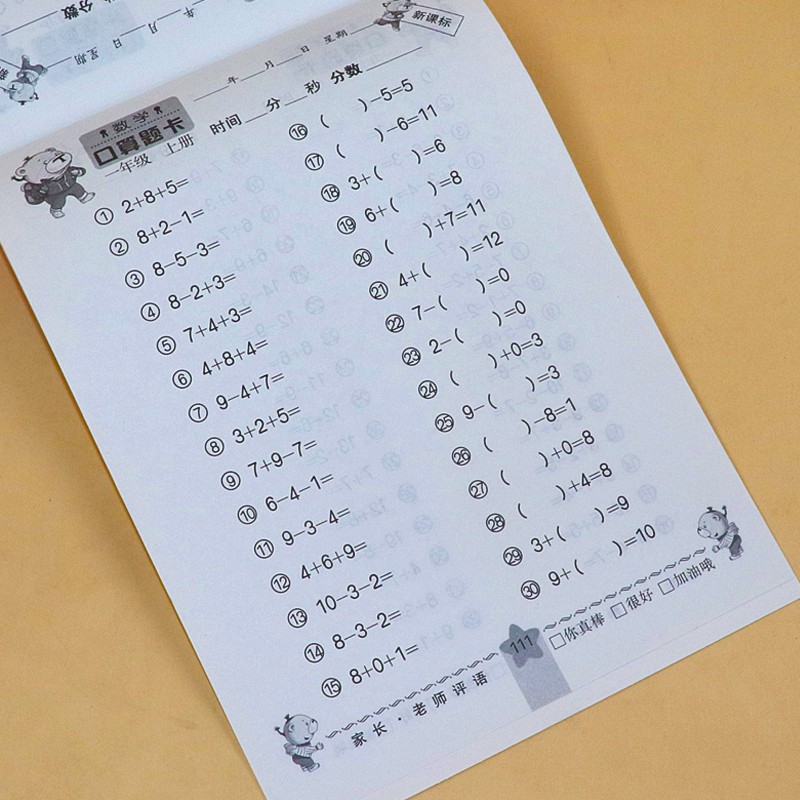 新课标
____年____月____日 星期____
数学
口算题卡
一年级 上册
时间____分____秒 分数____
① 2+8+5=
② 8+2−1=
③ 8−5−3=
④ 8−2+3=
⑤ 7+4+3=
⑥ 4+8+4=
⑦ 9−4+7=
⑧ 3+2+5=
⑨ 7+9−7=
⑩ 6−4−1=
⑪ 9−3−4=
⑫ 4+6+9=
⑬ 10−3−2=
⑭ 8−3−2=
⑮ 8+0+1=
⑯ (  )−5=5
⑰ (  )−6=11
⑱ 3+(  )=6
⑲ 6+(  )=8
⑳ (  )+7=11
㉑ 4+(  )=12
㉒ 7−(  )=0
㉓ 2−(  )=0
㉔ (  )+0=3
㉕ 9−(  )=3
㉖ (  )−8=1
㉗ (  )+0=8
㉘ (  )+4=8
㉙ 3+(  )=9
㉚ 9+(  )=10
家长·老师评语
111
□你真棒 □很好 □加油哦